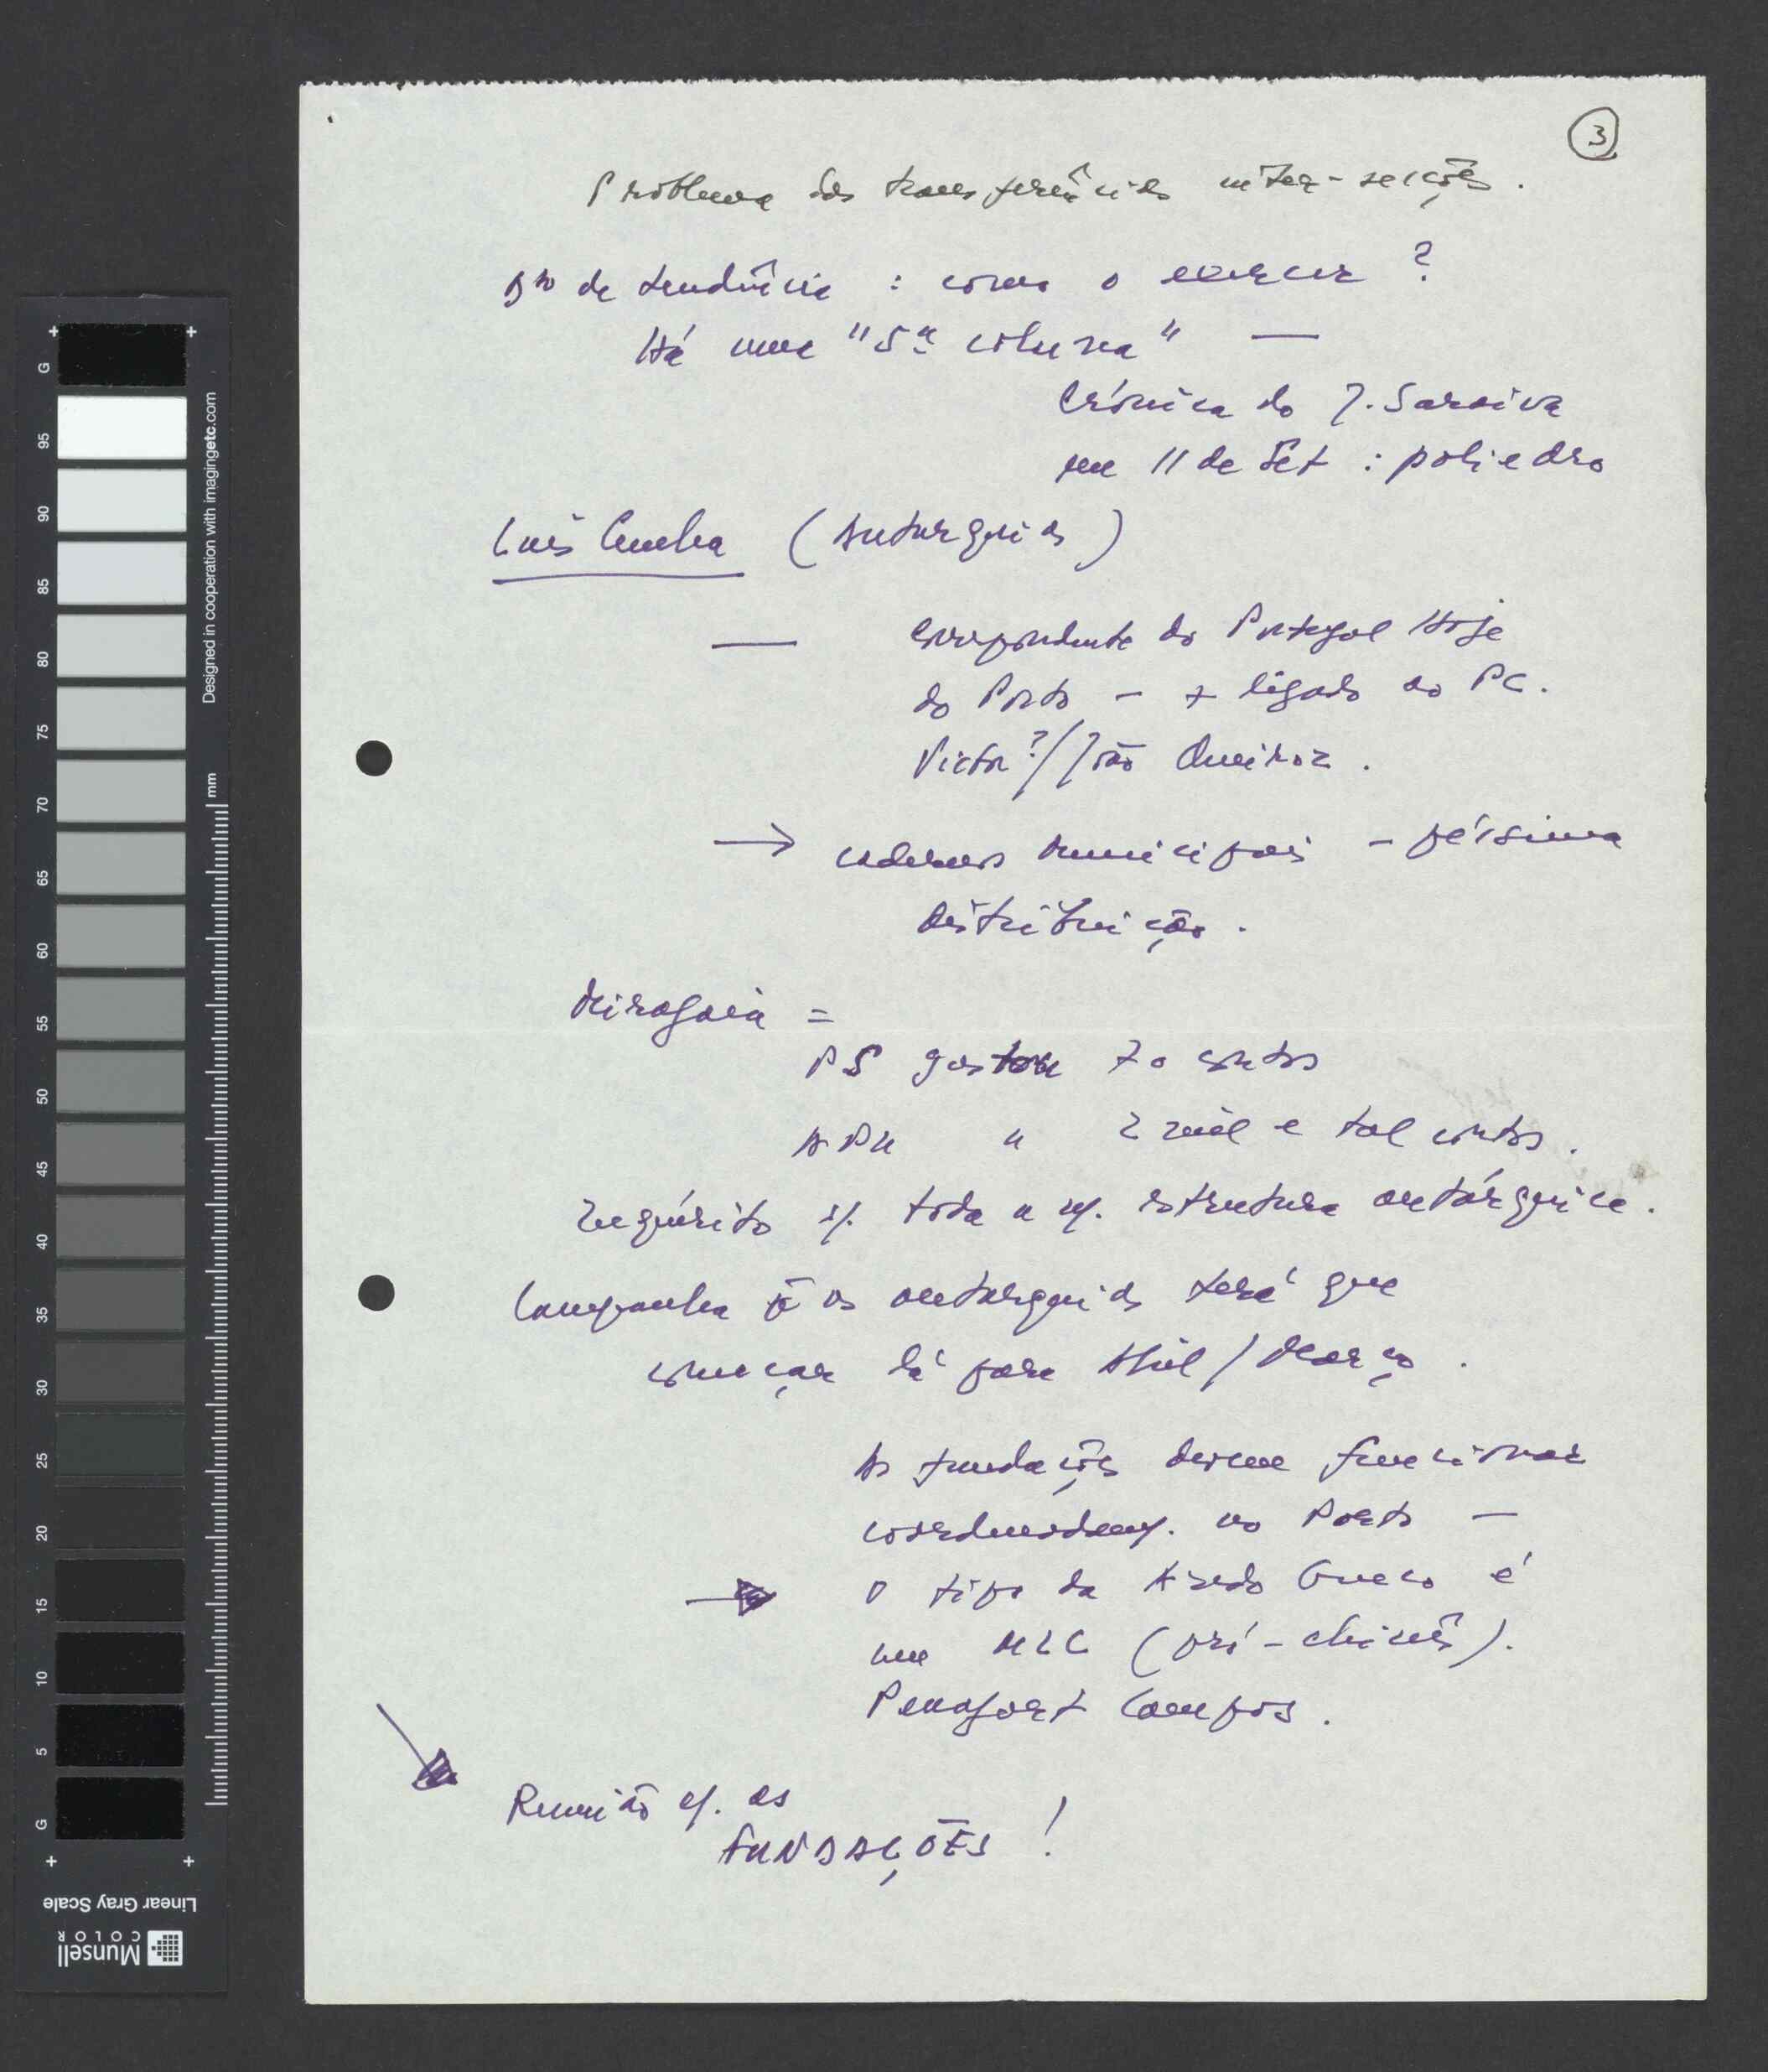 3
Problema das transferências inter-secções.
Dto de tendência : como o exercer ?
Há uma "5ª coluna" —
Crónica do J. Saraiva
em 11 de Set : poliedro
Luís Cunha (Autarquias)
— correspondente do Portugal Hoje
do Porto - + ligado ao PC.
Victor?/João Queiroz.
→ cadernos municipais - péssima
distribuição.
Miragaia =
PS gastou 70 contos
APU " 2 mil e tal contos.
Inquérito s/. toda a n/. estrutura autárquica.
Campanha p as autarquias terá que
começar lá para Abril / Março.
As fundações devem funcionar
coordenadam/. no Porto —
→ O tipo da Azedo Gneco é
um MLC (pró-chinês).
Penafort Campos.
Reunião c/. as
FUNDAÇÕES !
Designed in cooperation with imagingetc.com
mm
G 95 90 85 80 75 70 65 60 55 50 45 40 35 30 25 20 15 10 5 G
Linear Gray Scale
Munsell
COLOR